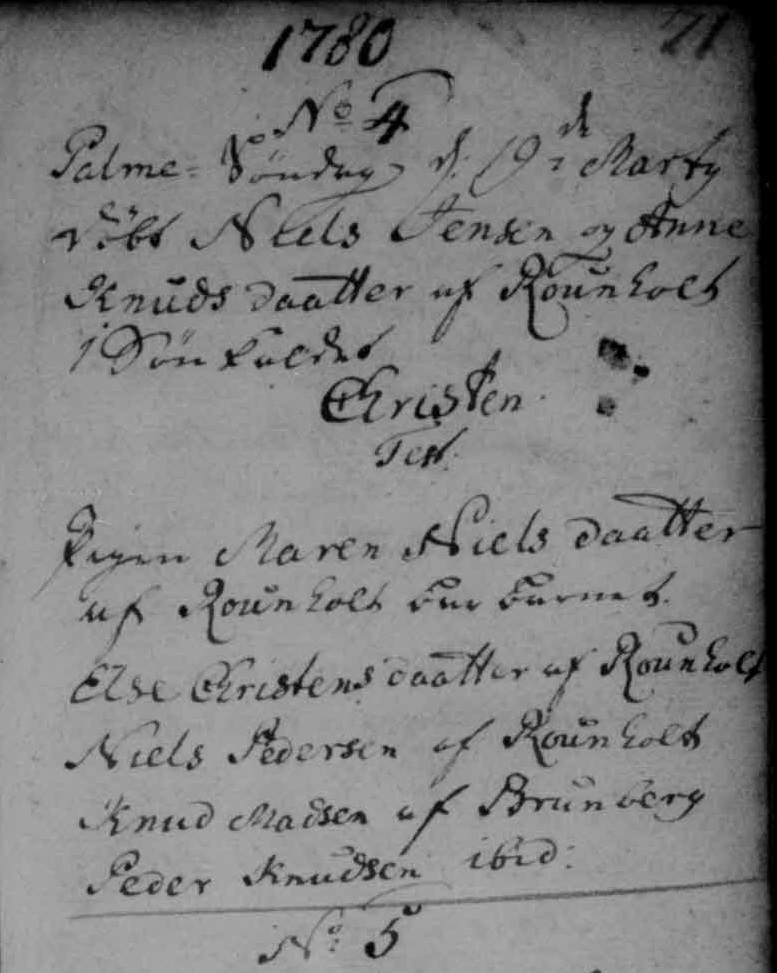 1780
71
No 4
Palme-Søndag d. 19de Martÿ
døbt Niels Jensen og Anne
Knuds daatter af Rounholt
1 Søn kaldet
Christen
Test.
Pigen Maren Niels daatter
af Rounholt bar barnet.
Else Christens daatter af Rounholt
Niels Pedersen af Rounholt
Knud Madsen af Brunberg
Peder Knudsen ibid:
No 5